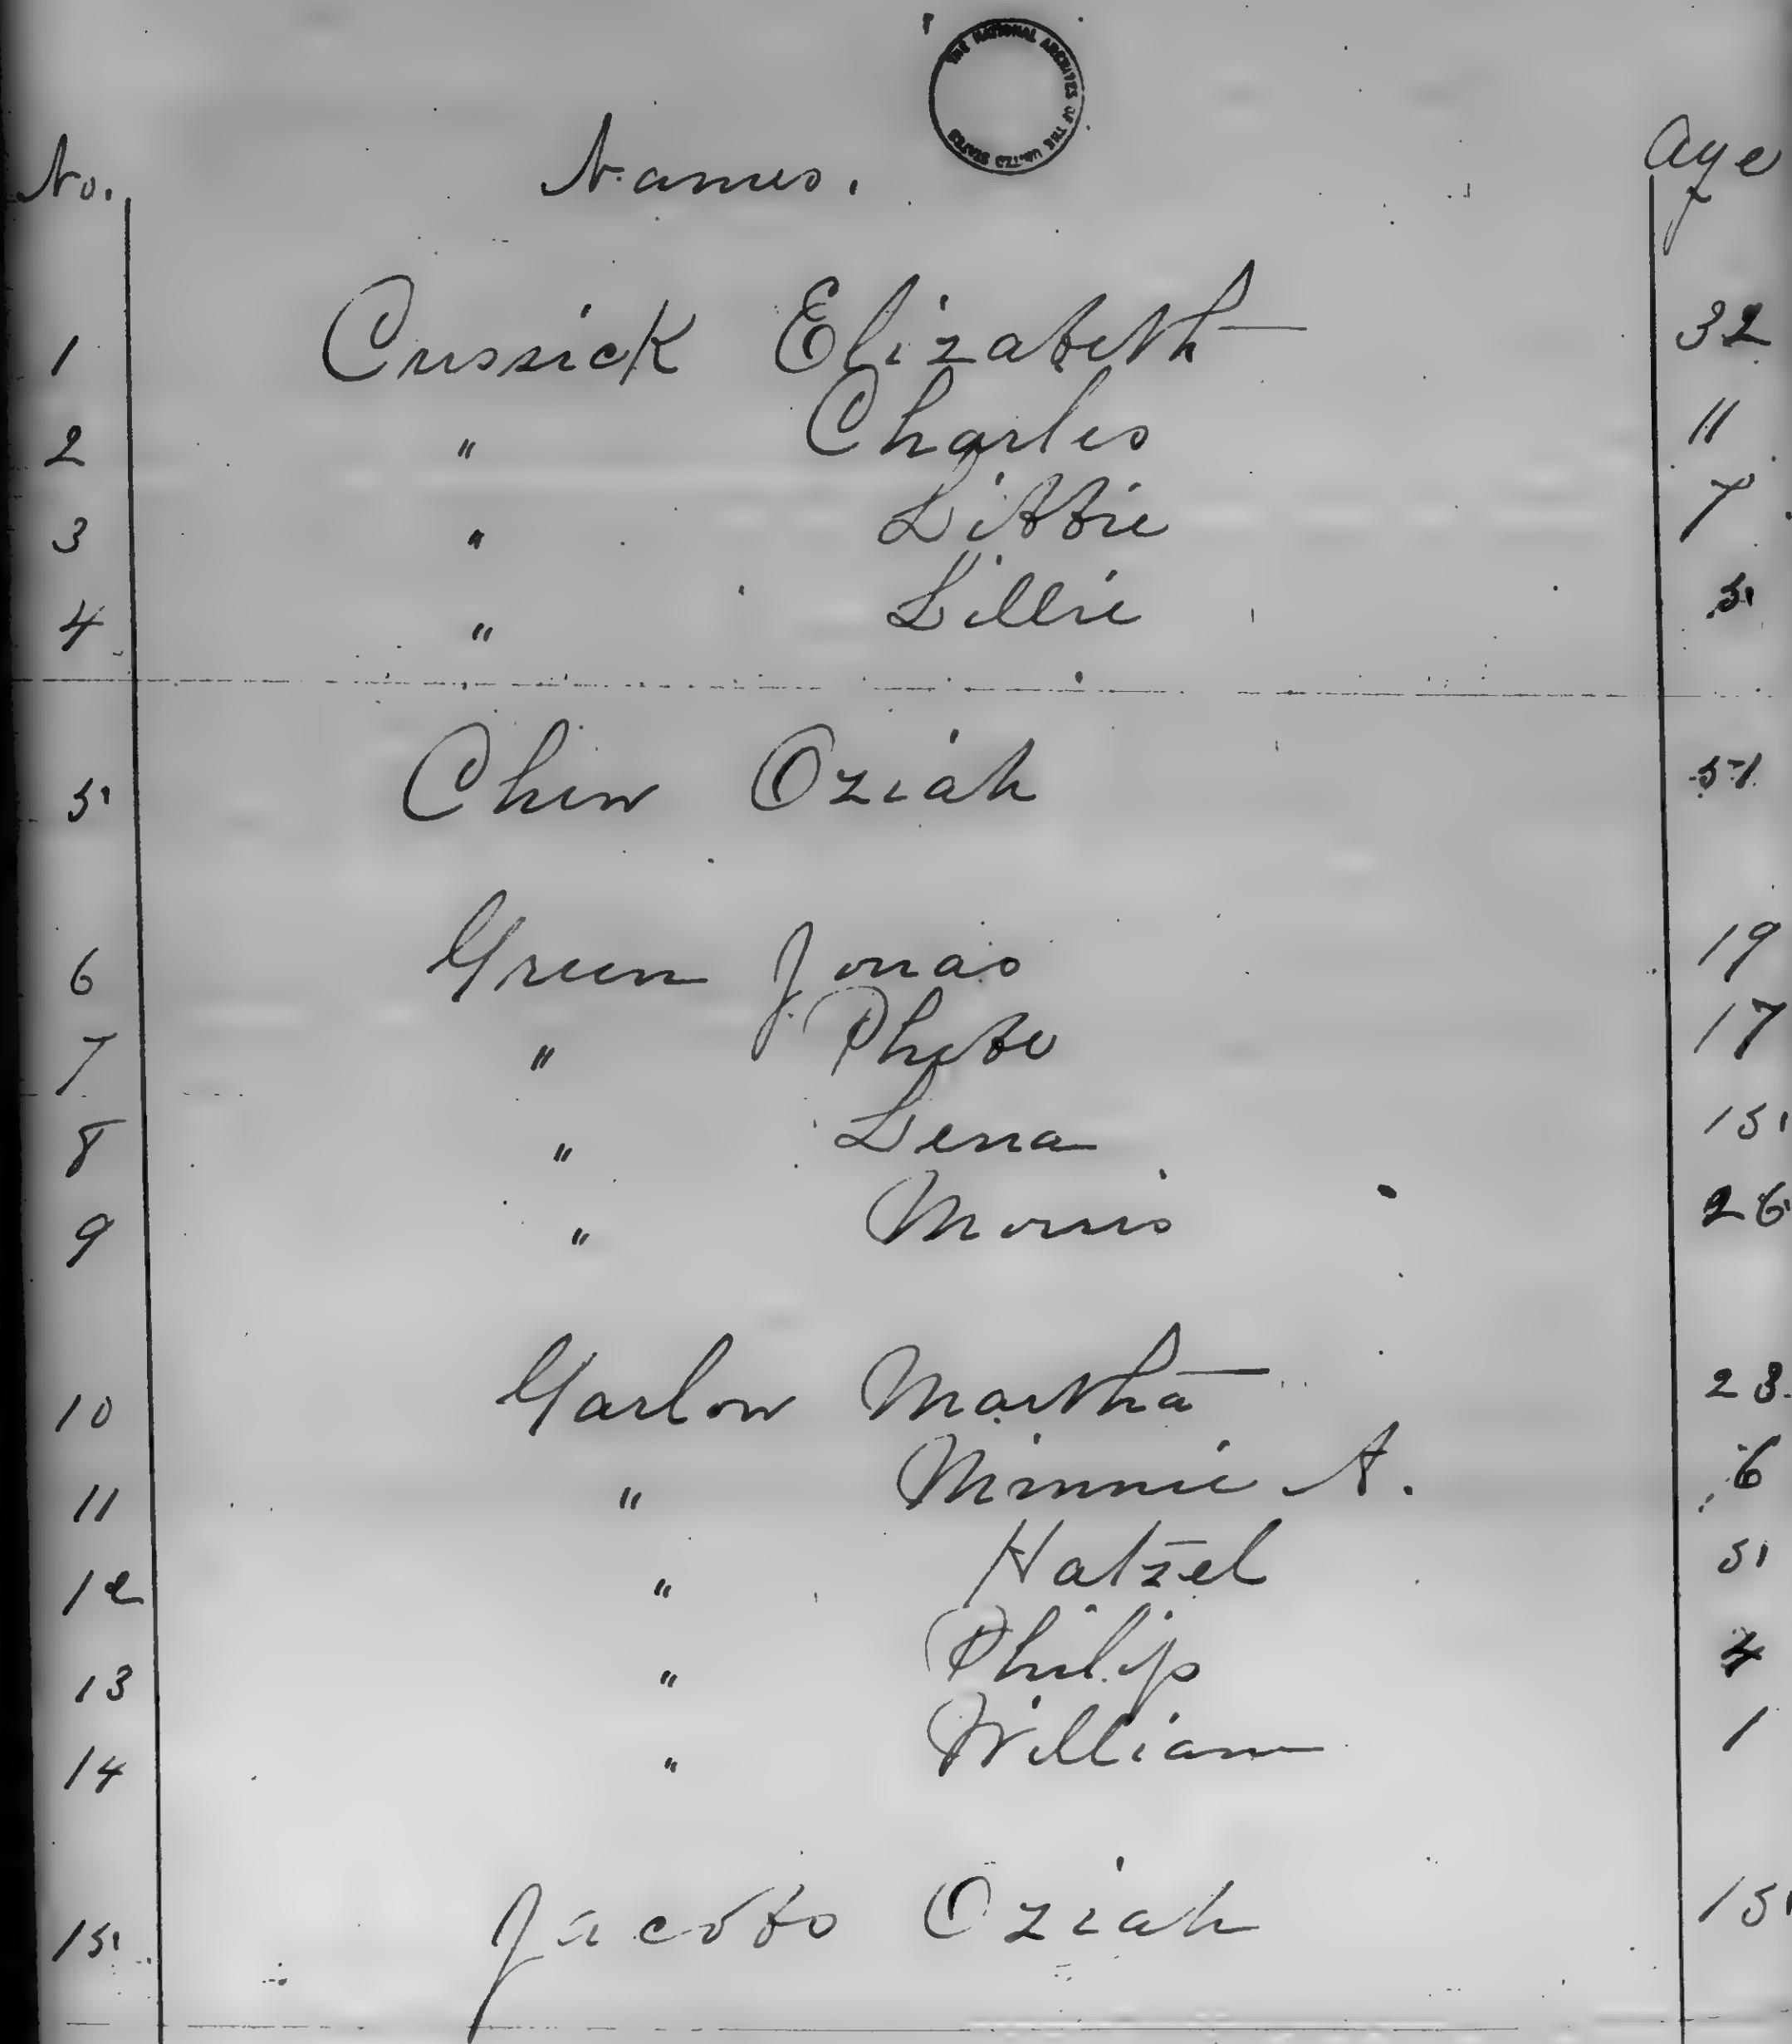 THE NATIONAL ARCHIVES OF THE UNITED STATES
No. Names. Age
1 Cussick Elizabeth 32
2 " Charles 11
3 " Libbie 7
4 " Lillie 5
5 Chew Oziah 51
6 Green Jonas 19
7 " Phebe 17
8 " Lena 15
9 " Morris 26
10 Garlow Martha 23
11 " Minnie A. 6
12 " Hatzel 5
13 " Philip 4
14 " William 1
15 Jacobs Oziah 15